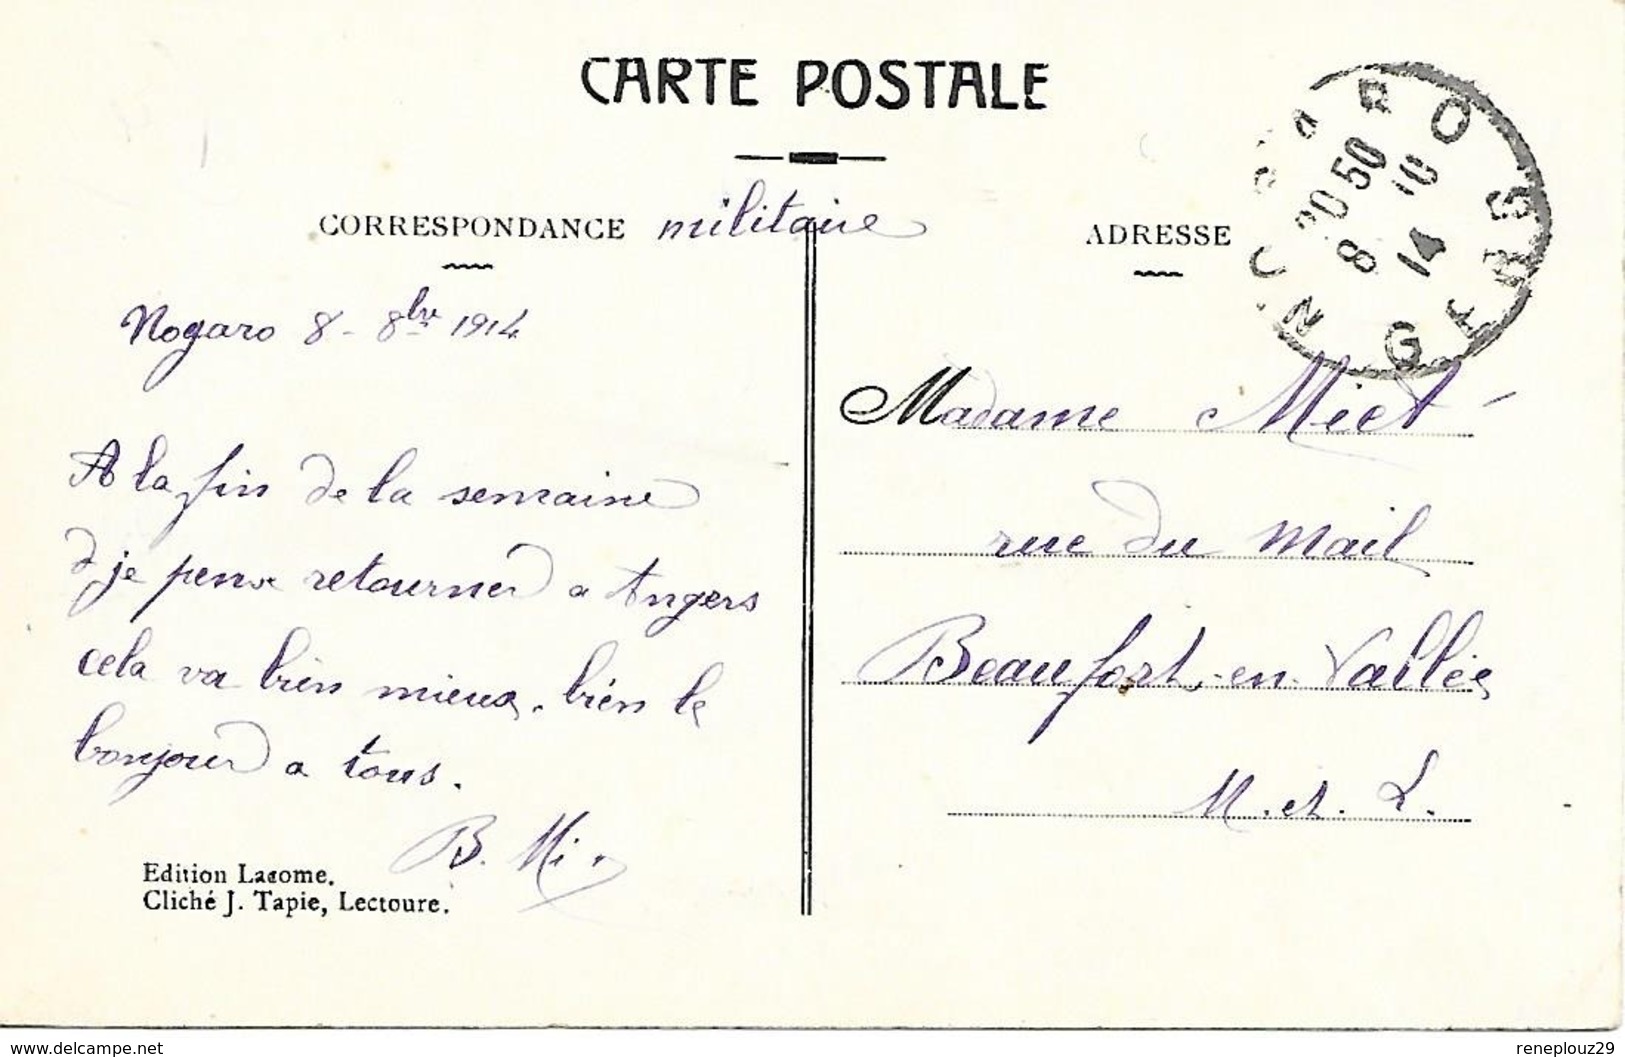 CARTE POSTALE
CORRESPONDANCE militaire
ADRESSE
NOGARO
20 50
8 10
14
GERS
Nogaro 8 - 8bre 1914
A la fin de la semaine
je pense retourner a Angers
cela va bien mieux. bien le
bonjour a tous.
B. Mi.
Edition Lacome.
Cliché J. Tapie, Lectoure.
Madame Miet
rue du Mail
Beaufort-en-Vallée
M. et. L.
delcampe.net
reneplouz29